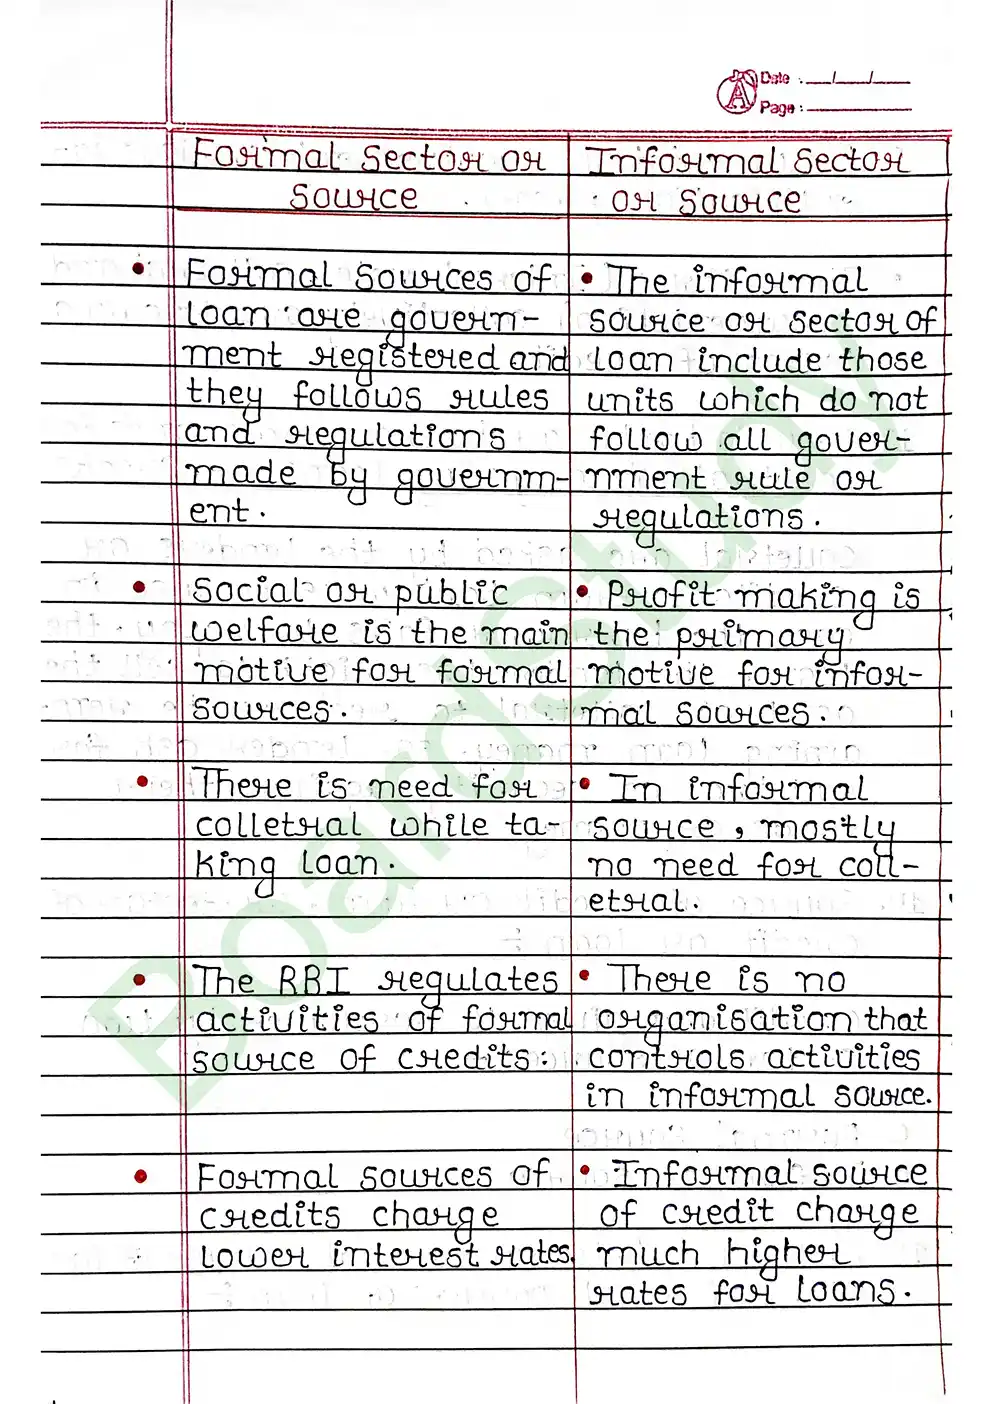 Date : __/__/__
Page : ______
Formal Sector or
Source
Informal Sector
or Source
• Formal Sources of
loan are govern-
ment registered and
they follows rules
and regulations
made by governm-
ent.
• The informal
source or sector of
loan include those
units which do not
follow all gover-
nment rule or
regulations.
• Social or public
welfare is the main
motive for formal
sources.
• Profit making is
the primary
motive for infor-
mal sources.
• There is need for
colletral while ta-
king loan.
• In informal
source, mostly
no need for coll-
etral.
• The RBI regulates
activities of formal
source of credits.
• There is no
organisation that
controls activities
in informal source.
• Formal sources of
credits charge
lower interest rates.
• Informal source
of credit charge
much higher
rates for loans.
Board Study